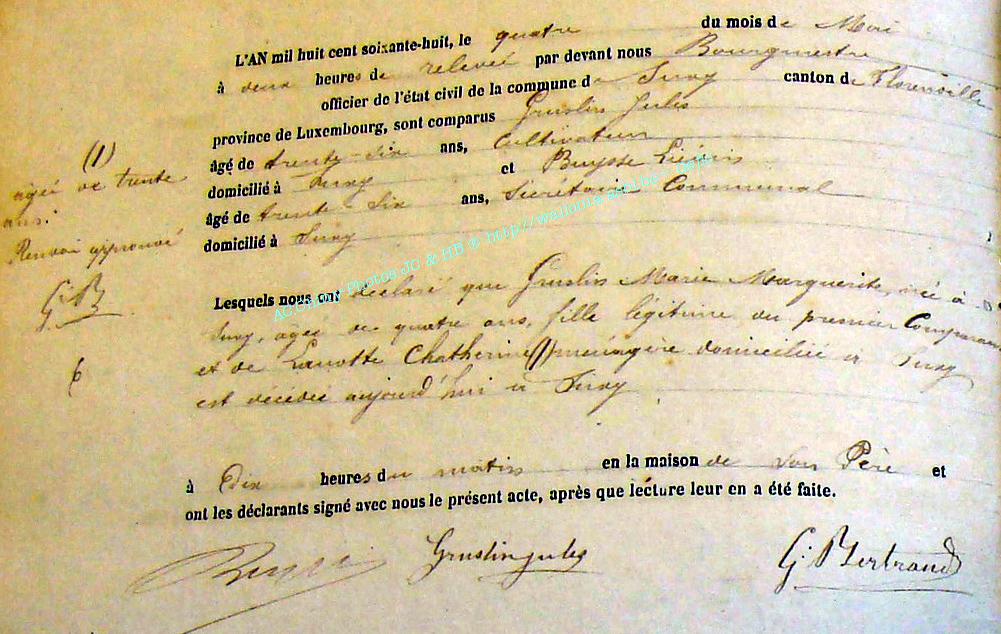 L'AN mil huit cent soixante-huit, le quatre du mois de Mai
à deux heures de relevée par devant nous Bourgmestre
officier de l'état civil de la commune de Suxy canton de Florenville
province de Luxembourg, sont comparus Gruslin Jules
âgé de trente-six ans, Cultivateur
domicilié à Suxy et Buysse
âgé de trente-six ans, Secrétaire Communal
domicilié à Suxy
(1)
agée de trente
ans.
Renvoi approuvé
G. B
6
Lesquels nous ont déclaré que Gruslin Marie Marguerite, née à
Suxy, agée de quatre ans, fille légitime du premier Comparant
et de Lanotte Chatherine (1)ménagère domiciliée à Suxy
est décédée aujourd'hui à Suxy
à Dix heures du matin en la maison de son Père et
ont les déclarants signé avec nous le présent acte, après que lecture leur en a été faite.
Gruslin Jules G. Bertrand